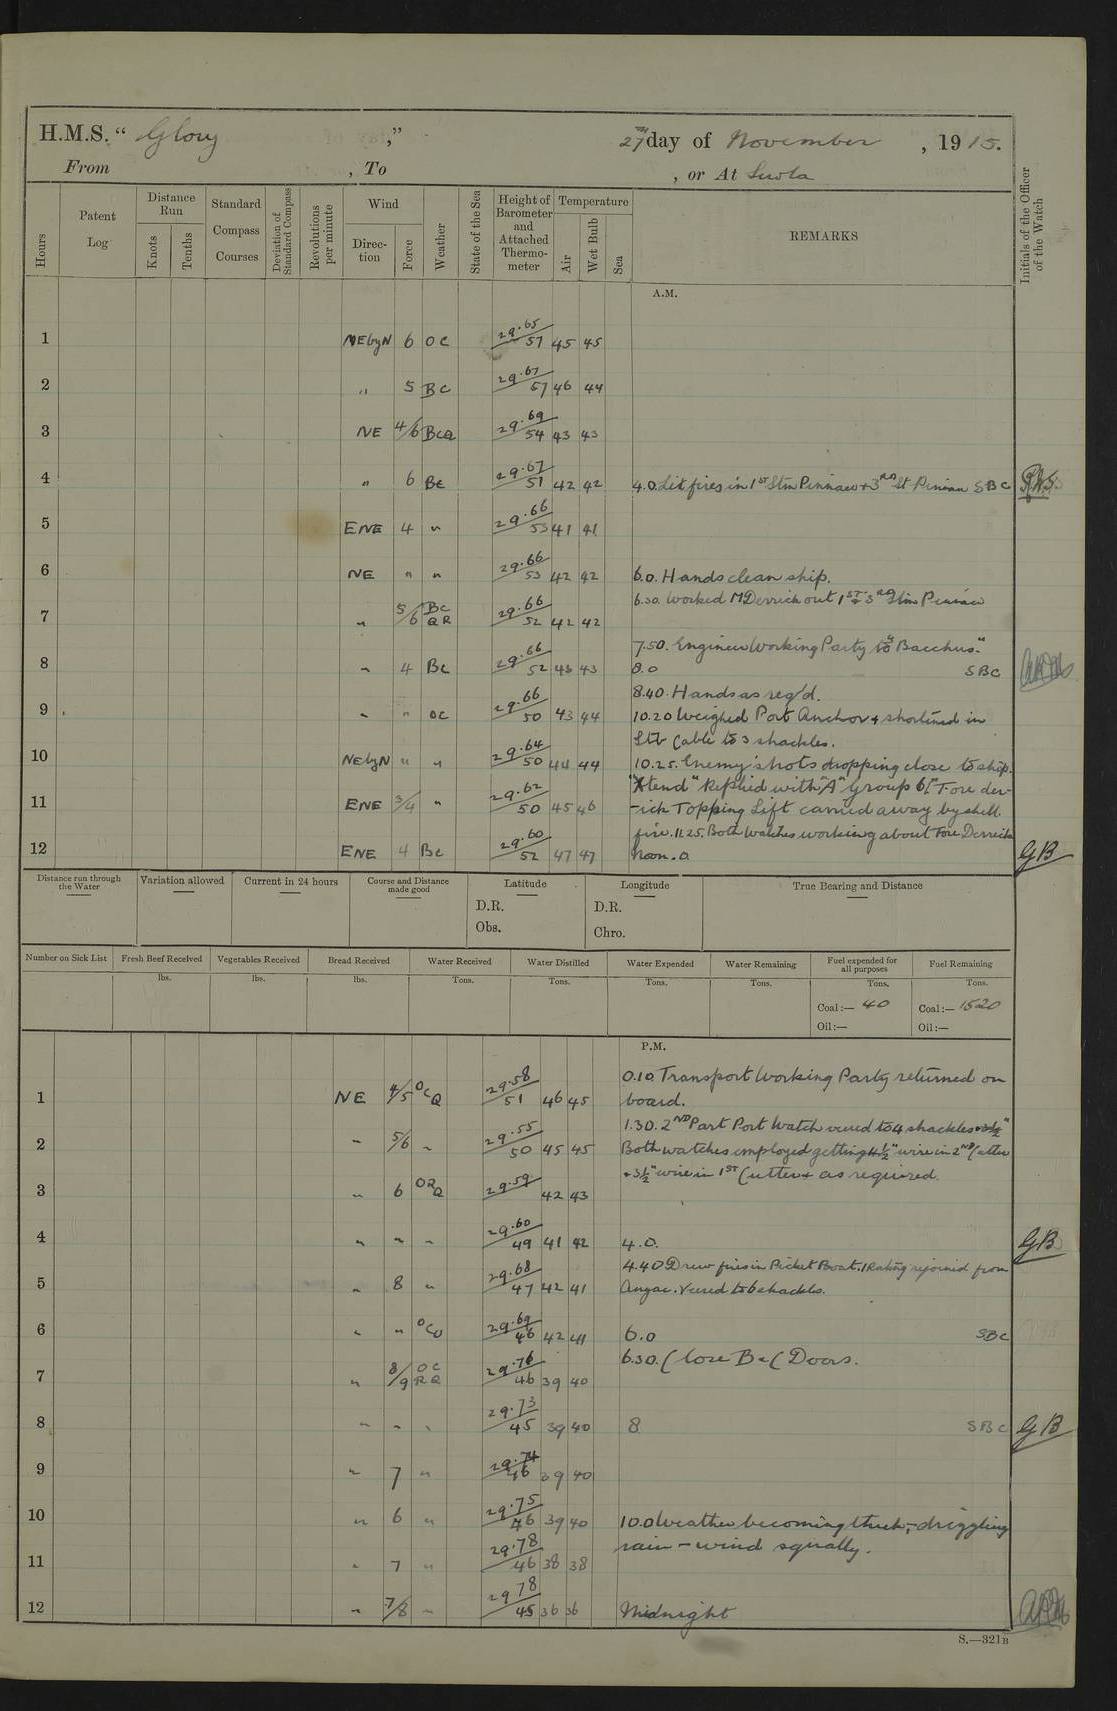 H.M.S. “ Glory ,” 27th day of November , 1915.
From , To , or At Suvla
Hours
Patent Log
Distance Run
Knots
Tenths
Standard Compass Courses
Deviation of Standard Compass
Revolutions per minute
Wind
Direction
Force
Weather
State of the Sea
Height of Barometer and Attached Thermometer
Temperature
Air
Wet Bulb
Sea
REMARKS
Initials of the Officer of the Watch
A.M.
1 NEbyN 6 OC 29.65/57 45 45
2 " 5 BC 29.67/57 46 44
3 NE 4/6 BCQ 29.69/54 43 43
4 " 6 BC 29.67/51 42 42 4.0. Lit fires in 1ST Stm Pinnace + 3RD St Pinnace SBC
5 ENE 4 " 29.66/53 41 41
6 NE " " 29.66/53 42 42 6.0. Hands clean ship.
6.30. Worked M Derrick out 1ST + 3RD Stm Pinnace
7 " 5/6 BC QR 29.66/52 42 42
7.50. Engineer Working Party to "Bacchus."
8 " 4 BC 29.66/52 43 43 8.0 SBC
8.40. Hands as req'd.
9 " " OC 29.66/50 43 44 10.20 Weighed Port Anchor + shortened in
Stb Cable to 3 shackles.
10 NEbyN " " 29.64/50 44 44 10.25. Enemy's hots dropping close to ship.
Replied with "A" Group 6". Fore der-
11 ENE 3/4 " 29.62/50 45 46 -ick Topping Lift carried away by shell
fire. 11.25. Both Watches working about Fore Derrick
12 ENE 4 BC 29.60/52 47 47 Noon. 0 GB
Distance run through the Water
Variation allowed
Current in 24 hours
Course and Distance made good
Latitude
D.R.
Obs.
Longitude
D.R.
Chro.
True Bearing and Distance
Number on Sick List
Fresh Beef Received
lbs.
Vegetables Received
lbs.
Bread Received
lbs.
Water Received
Tons.
Water Distilled
Tons.
Water Expended
Tons.
Water Remaining
Tons.
Fuel expended for all purposes
Tons.
Coal:— 40
Oil:—
Fuel Remaining
Tons.
Coal:— 1520
Oil:—
P.M.
0.10. Transport Working Party returned on
1 NE 4/5 OCQ 29.58/51 46 45 board.
1.30. 2ND Part Port Watch veered to 4 shackles
2 " 5/6 " 29.55/50 45 45 Both watches employed getting 4½" wire in 2ND Cutter
+ 3½" wire in 1ST Cutter + as required.
3 " 6 ORQ 29.59 42 43
4 " " " 29.60/49 41 42 4.0. GB
4.40 Drew fires in Picket Boat. 1 Rating rejoined from
5 " 8 " 29.68/47 42 41 Anzac. Veered to 6 shackles.
6 " " 29.69/46 42 41 6.0 SBC
6.30. Close Be( Doors.
7 " 8/9 OC RQ 29.76/46 39 40
8 " " " 29.73/45 39 40 8 SBC GB
9 " 7 " 29.74/46 39 40
10 " 6 " 29.75/46 39 40 10.0 Weather becoming thick, – drizzling
rain – wind squally.
11 " 7 " 29.78/46 38 38
12 " 7/8 " 29 78/45 36 36 Midnight
S.—321B